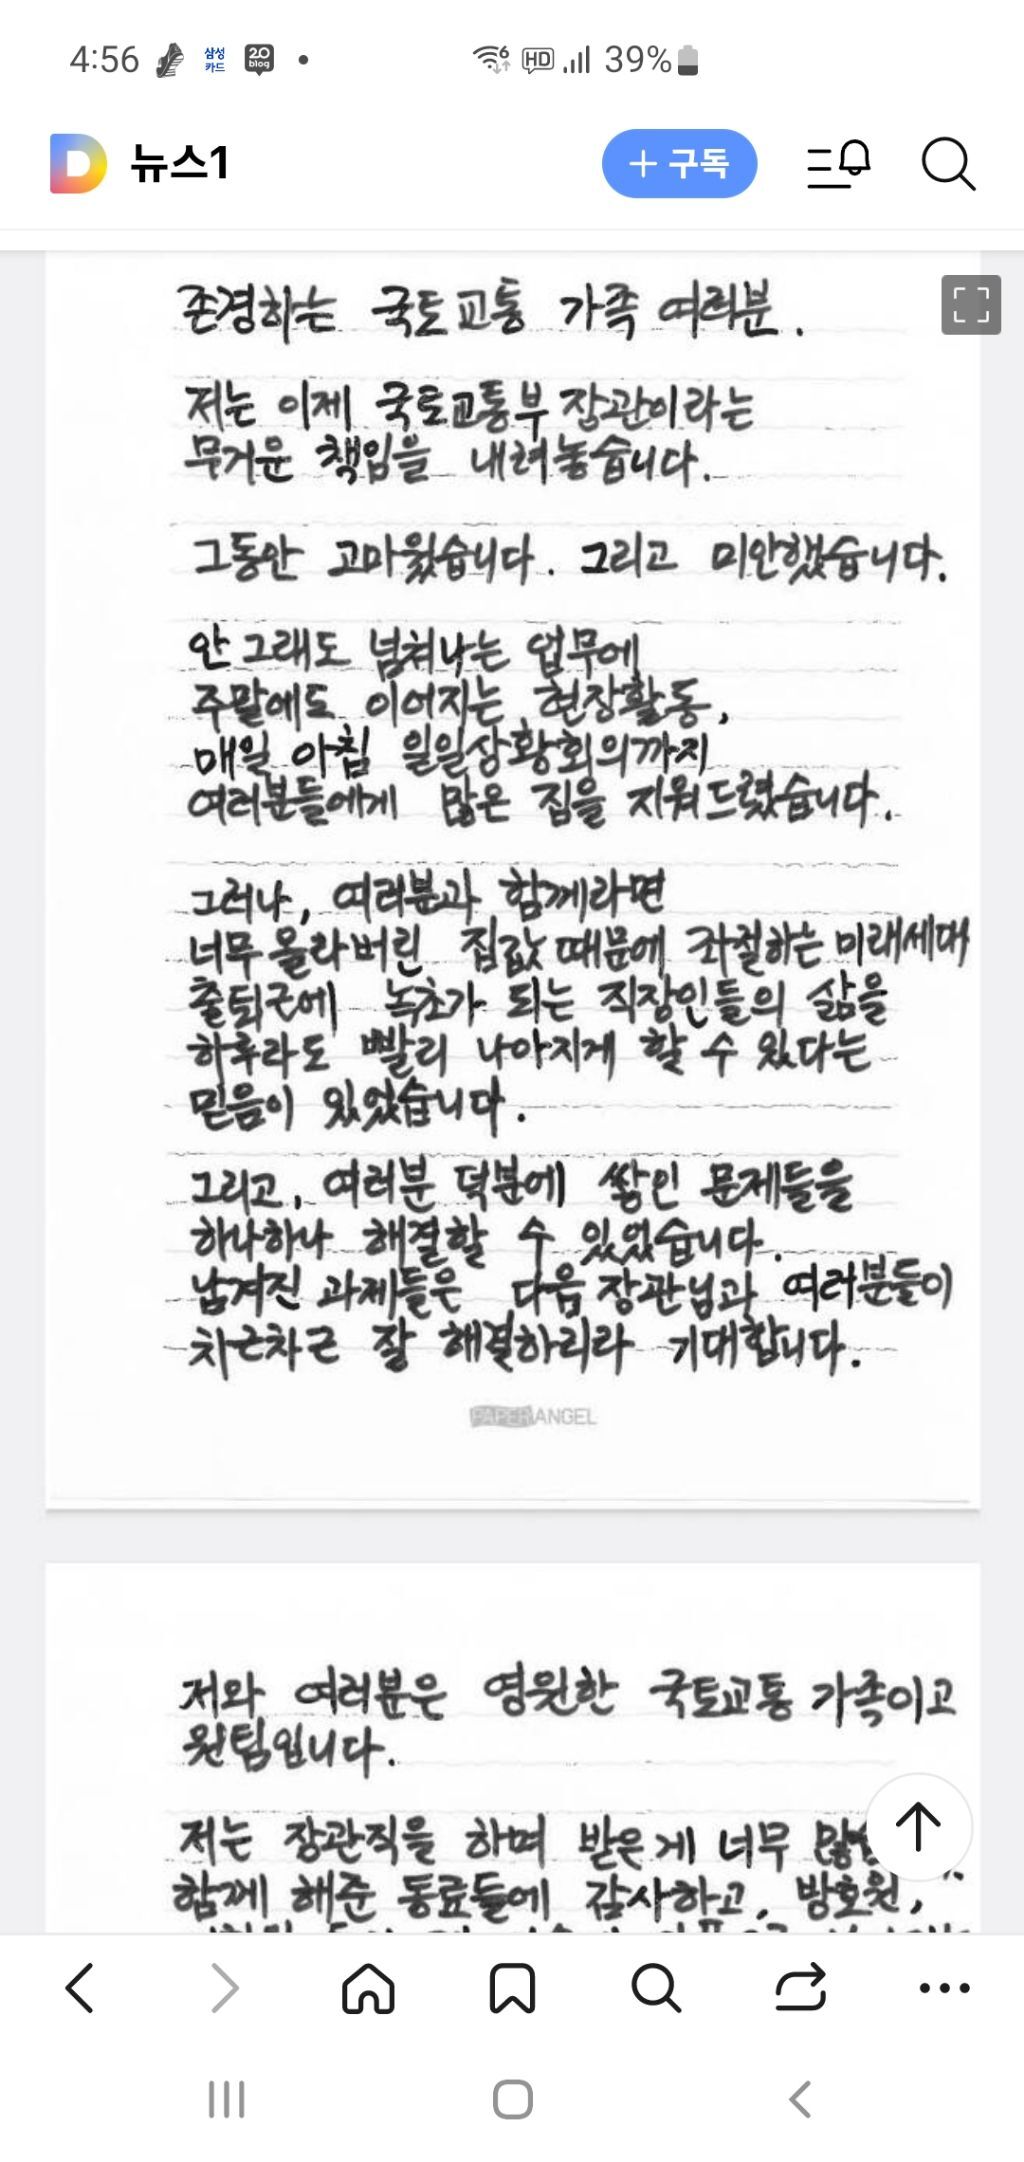 4:56 삼성 카드 20 blog 6 HD 39%
뉴스1 + 구독
존경하는 국토교통 가족 여러분.
저는 이제 국토교통부 장관이라는
무거운 책임을 내려놓습니다.
그동안 고마웠습니다. 그리고 미안했습니다.
안 그래도 넘쳐나는 업무에
주말에도 이어지는 현장활동,
매일 아침 일일상황회의까지
여러분들에게 많은 짐을 지워드렸습니다.
그러나, 여러분과 함께라면
너무 올라버린 집값 때문에 좌절하는 미래세대
출퇴근에 녹초가 되는 직장인들의 삶을
하루라도 빨리 나아지게 할 수 있다는
믿음이 있었습니다.
그리고, 여러분 덕분에 쌓인 문제들을
하나하나 해결할 수 있었습니다.
남겨진 과제들은 다음 장관님과 여러분들이
차근차근 잘 해결하리라 기대합니다.
PAPER ANGEL
저와 여러분은 영원한 국토교통 가족이고
원팀입니다.
저는 장관직을 하며 받은 게 너무
함께 해준 동료들에 감사하고, 방호원,